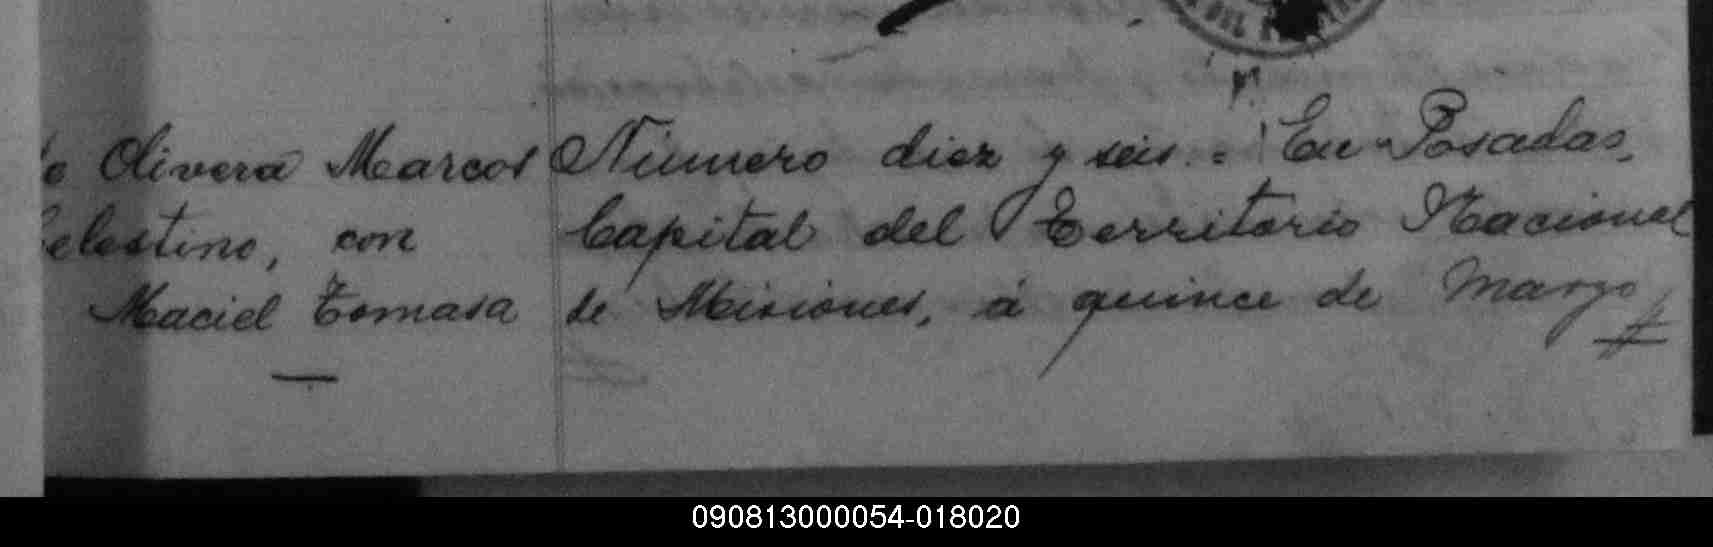 Olivera Marcos
Celestino, con
Maciel Tomasa
Número diez y seis. = En Posadas,
Capital del Territorio Nacional
de Misiones, á quince de Marzo
090813000054-018020